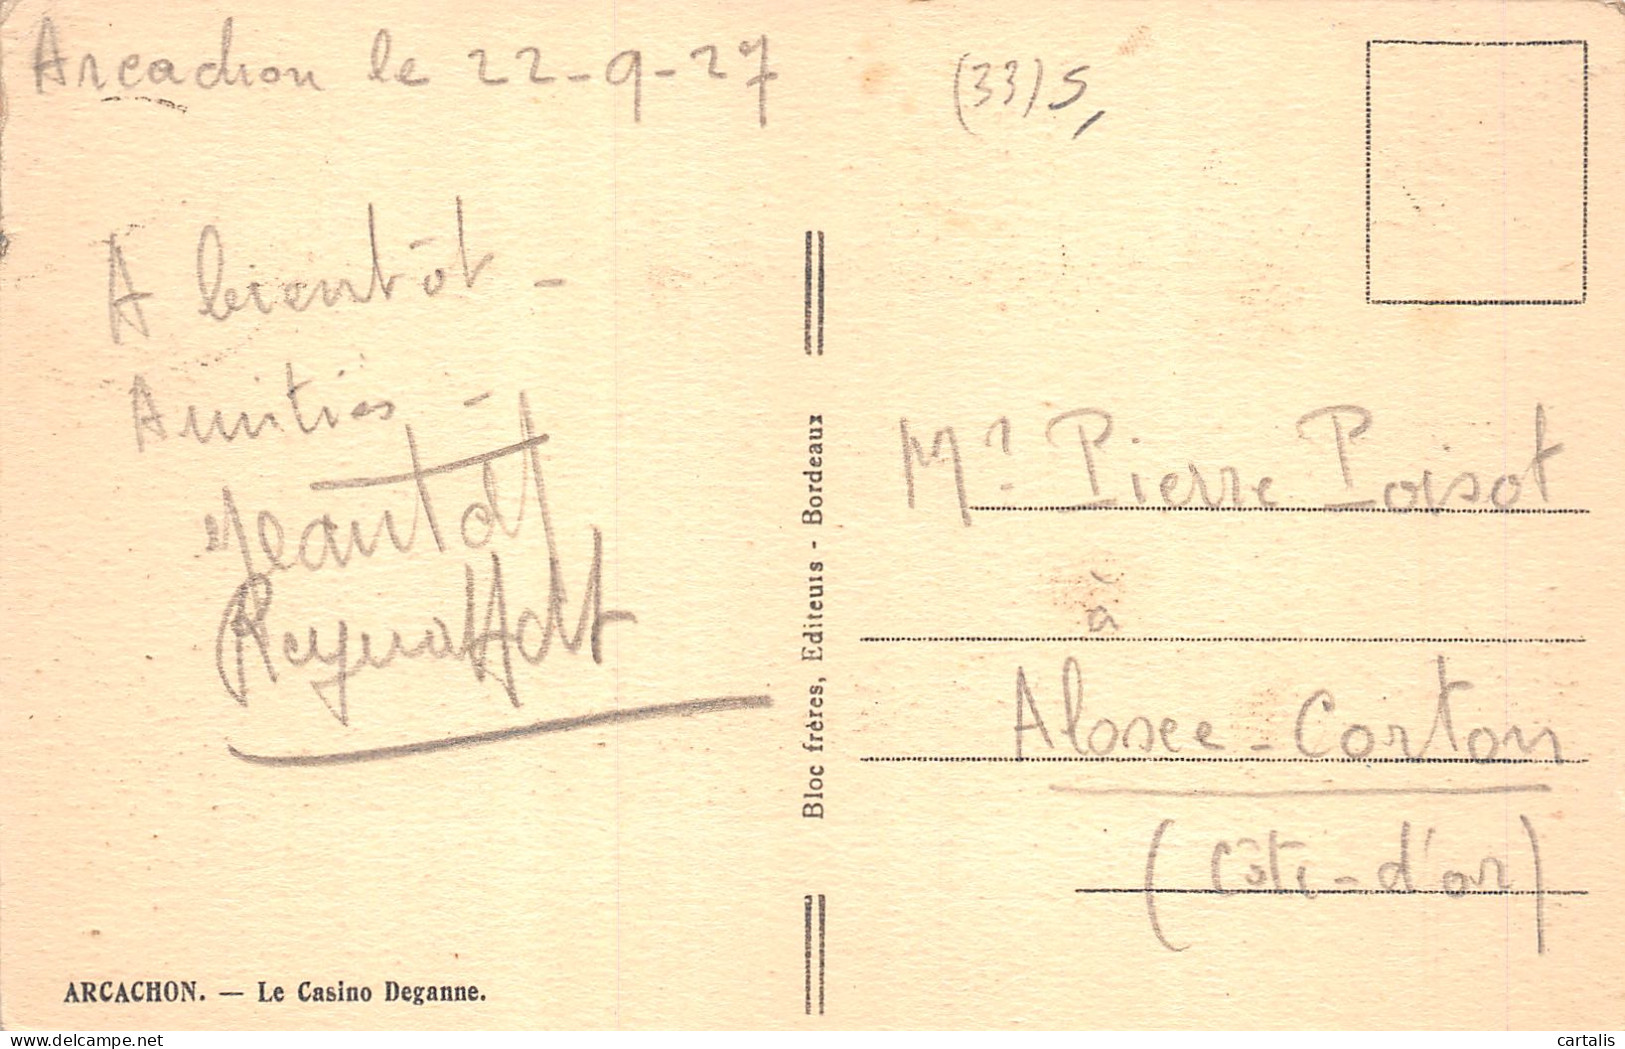 Arcachon le 22-9-27
(33) 5,
A bientôt -
Amitiés -
Mr Pierre Poisot
à
Alosee-Corton
(Côte-d'or)
Bloc frères, Editeurs - Bordeaux
ARCACHON. — Le Casino Deganne.
cartalis